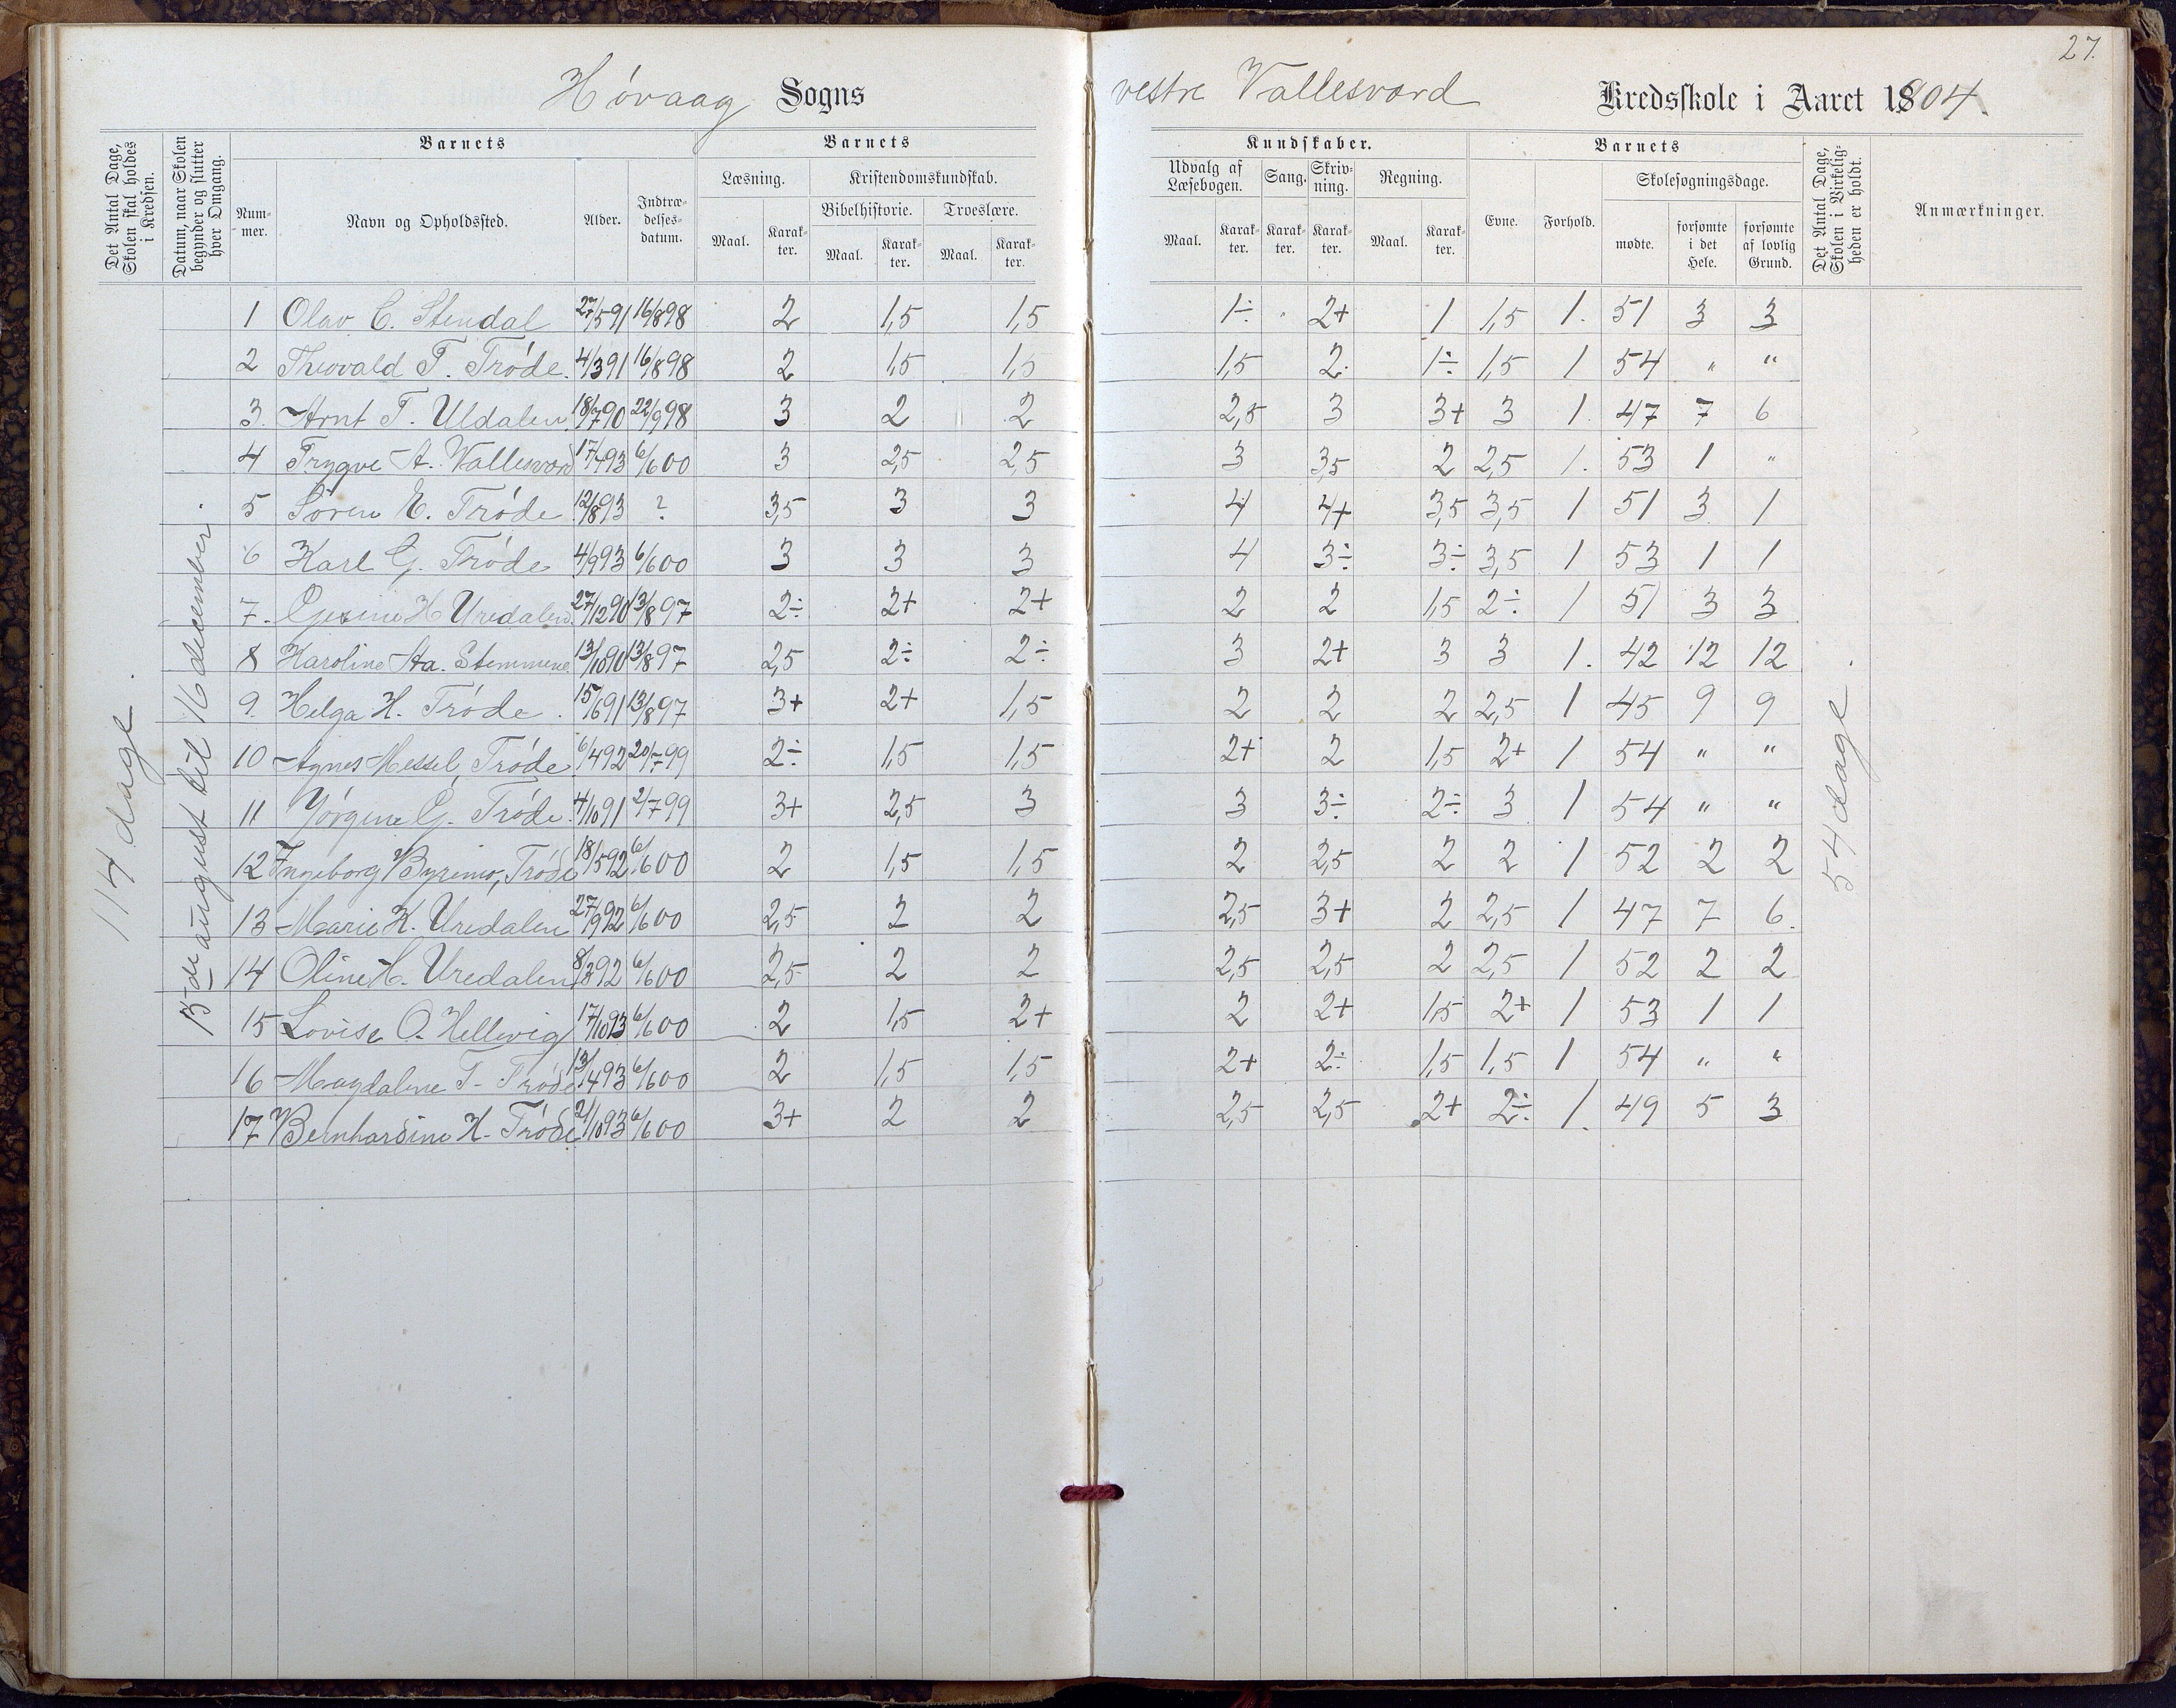 27.
Høvaag Sogns vestre Vallesværd Kredsskole i Aaret 1904.
Det Antal Dage, Skolen skal holdes i Kredsen.
Datum, naar Skolen begynder og slutter hver Omgang.
Barnets
Num-mer.
Navn og Opholdssted.
Alder.
Indtræ-delses-datum.
Barnets
Læsning.
Maal. Karak-ter.
Kristendomskundskab.
Bibelhistorie. Troeslære.
Maal. Karak-ter. Maal. Karak-ter.
Kundskaber.
Udvalg af Læsebogen. Sang. Skriv-ning. Regning.
Maal. Karak-ter. Karak-ter. Karak-ter. Maal. Karak-ter.
Barnets
Evne. Forhold.
Skolesøgningsdage.
mødte. forsømte i det Hele. forsømte af lovlig Grund.
Det Antal Dage, Skolen i Virkelig-heden er holdt.
Anmærkninger.
114 dage.
15de august til 16 december.
1 Olav C. Stendal 27/5 91 16/8 98 2 1,5 1,5 1÷ 2+ 1 1,5 1. 51 3 3
2 Thorvald T. Trøde. 4/3 91 16/8 98 2 1,5 1,5 1,5 2 1÷ 1,5 1 54 " "
3. Arnt T. Uldalen 18/7 90 22/9 98 3 2 2 2,5 3 3+ 3 1. 47 7 6
4 Trygve A. Vallesværd 17/7 93 6/6 00 3 2,5 2,5 3 3,5 2 2,5 1. 53 1 "
5 Søren E. Trøde 12/8 93 ? 3,5 3 3 4 4+ 3,5 3,5 1 51 3 1
6 Karl G. Trøde 4/9 93 6/6 00 3 3 3 4 3÷ 3÷ 3,5 1 53 1 1
7. Gesine H Uredalen 27/12 90 13/8 97 2÷ 2+ 2+ 2 2 1,5 2÷ 1 51 3 3
8 Karoline Aa. Stemmene 13/10 90 13/8 97 2,5 2÷ 2÷ 3 2+ 3 3 1. 42 12 12
9. Helga H. Trøde. 15/6 91 13/8 97 3+ 2+ 1,5 2 2 2 2,5 1 45 9 9
10 Agnes Messel, Trøde 6/4 92 20/7 99 2÷ 1,5 1,5 2+ 2 1,5 2+ 1 54 " "
11 Jørgine G. Trøde. 4/10 91 2/7 99 3+ 2,5 3 3 3÷ 2÷ 3 1 54 " "
12 Ingeborg Byremo, Trøde 18/5 92 6/6 00 2 1,5 1,5 2 2,5 2 2 1 52 2 2
13 Marie K. Uredalen 27/9 92 6/6 00 2,5 2 2 2,5 3+ 2 2,5 1 47 7 6.
14 Oline H. Uredalen 8/3 92 6/6 00 2,5 2 2 2,5 2,5 2 2,5 1 52 2 2
15 Lovise O. Hellevig 17/10 93 6/6 00 2 1,5 2+ 2 2+ 1,5 2+ 1 53 1 1
16 Magdalene T. Trøde 13/4 93 6/6 00 2 1,5 1,5 2+ 2÷ 1,5 1,5 1 54 " "
17 Bernhardine H. Trøde 21/10 93 6/6 00 3+ 2 2 2,5 2,5 2+ 2÷ 1. 49 5 3
54 dage.